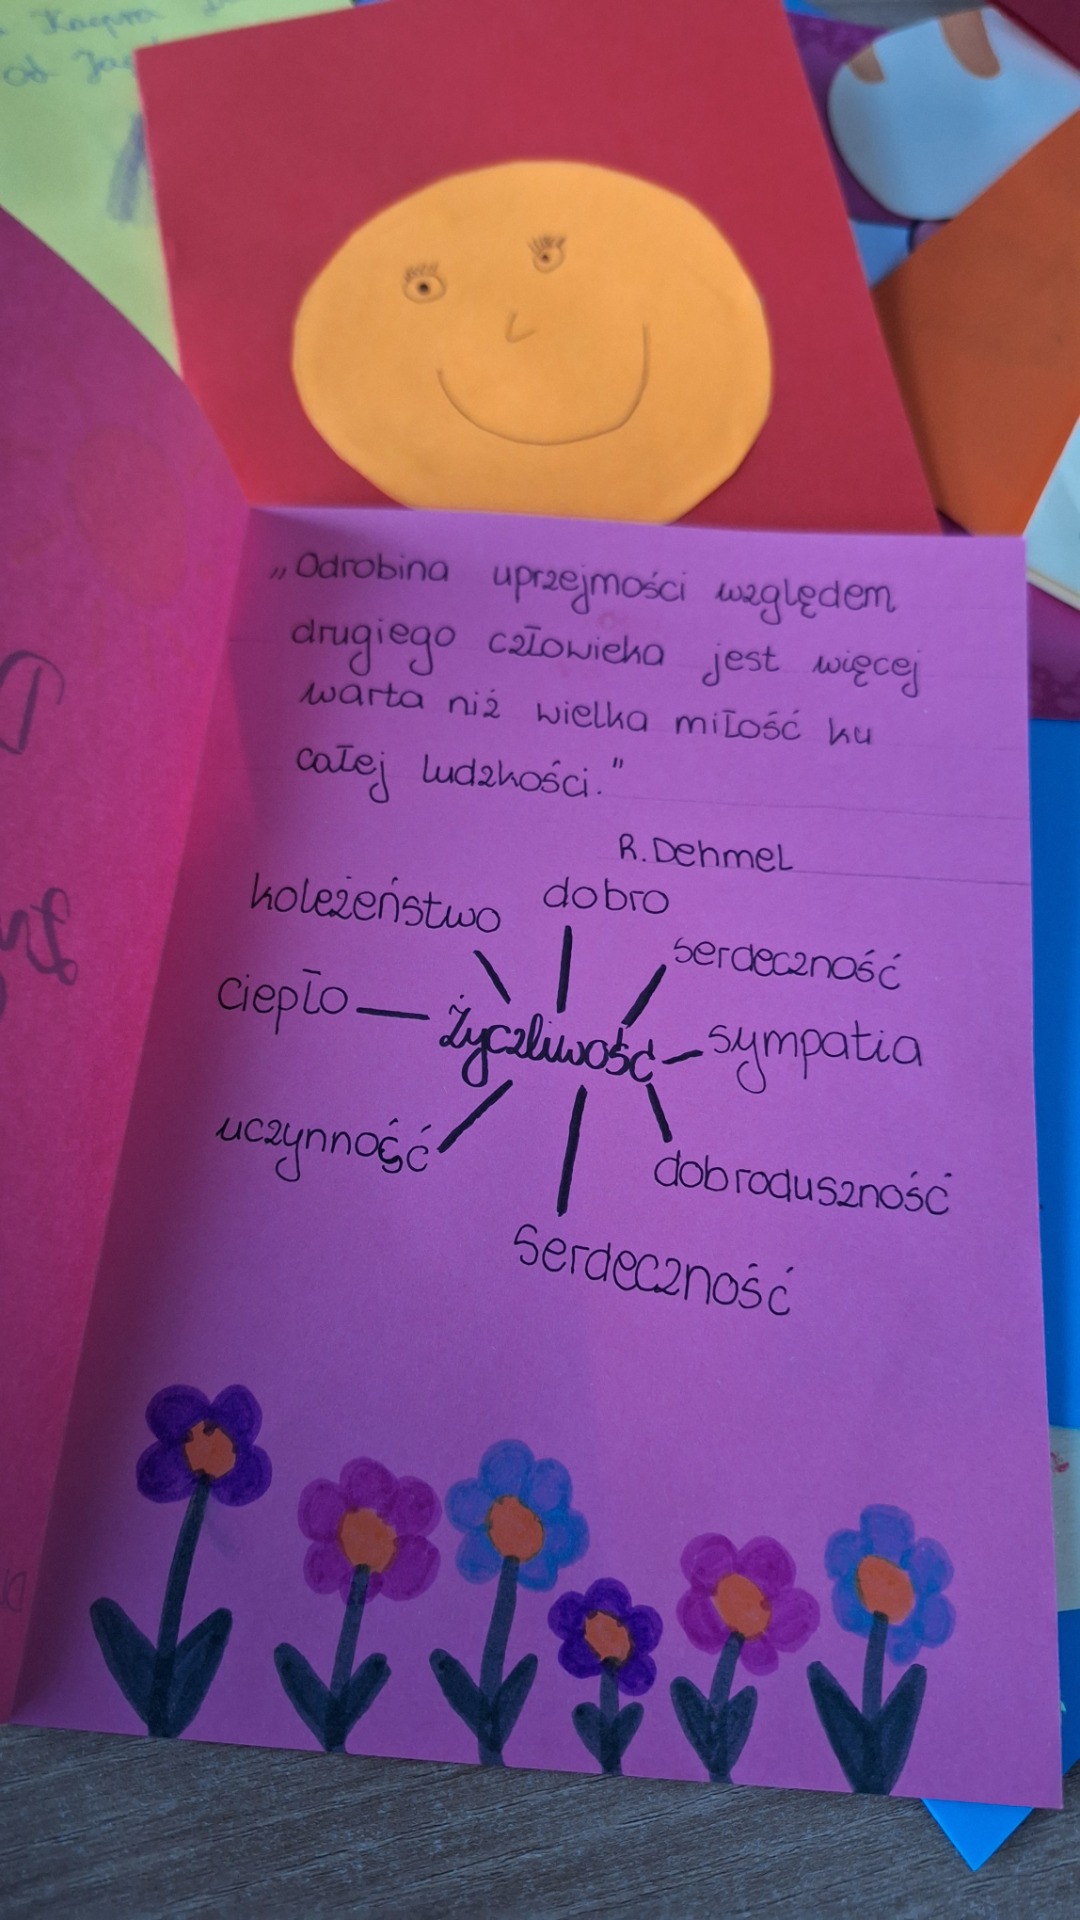 Kacpra
od
„Odrobina uprzejmości względem
drugiego człowieka jest więcej
warta niż wielka miłość ku
całej ludzkości."
R. Dehmel
koleżeństwo
dobro
serdeczność
ciepło
Życzliwość
sympatia
uczynność
dobroduszność
Serdeczność